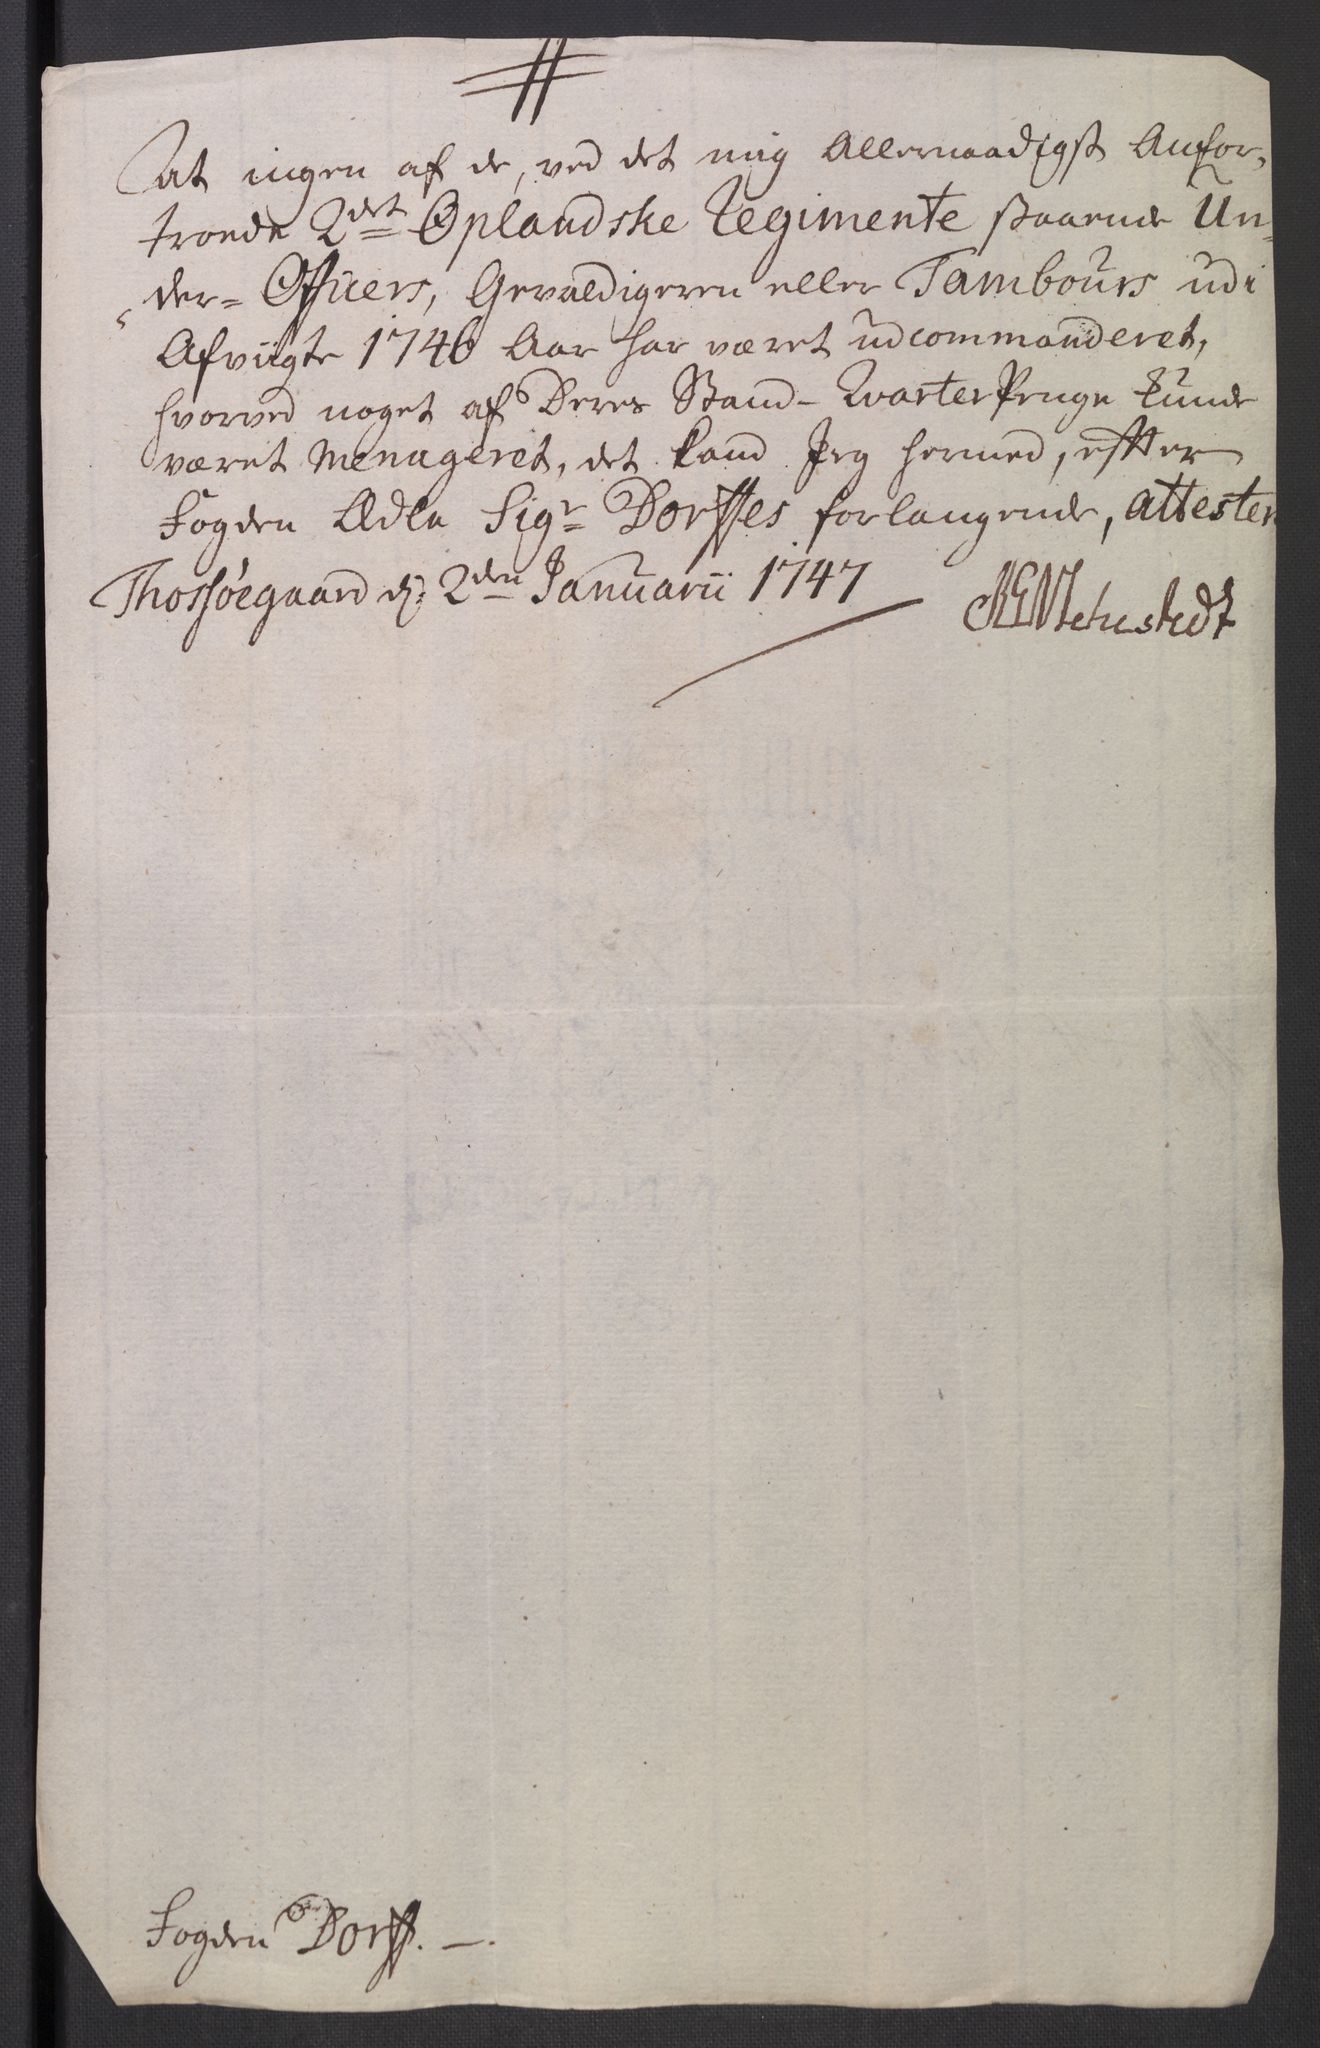 At ingen af de, ved det mig Allernaadigst Anfor-
troede 2det Oplandske Regimente staaende Un-
der- Officers, Gevaldigeren eller Tambours udi
Afvigte 1746 Aar har været udcommanderet,
hvorved noget af Deres Stand- Qvarter Penge kunde
været Menageret, det kand Jeg hermed, effter
Fogden Ædle Sigr Dorffes forlangende, attestere
Thossøegaard d: 2den Januarii 1747
Fogden Dorff. —.